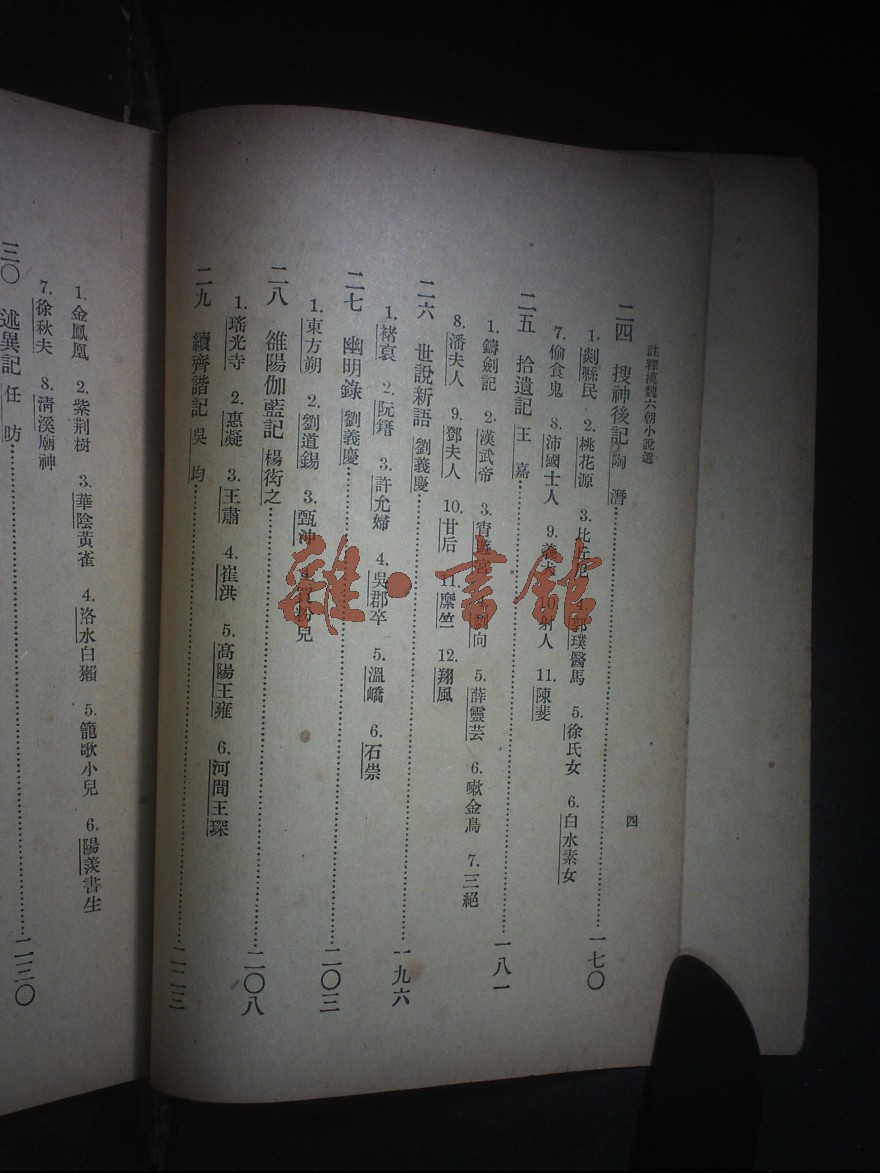 註釋漢魏六朝小說選
四
二四 搜神後記 陶潛……一七〇
1.剡縣民 2.桃花源 3.比丘尼 4.郭璞醫馬 5.徐氏女 6.白水素女
7.偷食鬼 8.沛國士人 9.義犬 10.射人 11.陳斐
二五 拾遺記 王嘉……一八一
1.鑄劍記 2.漢武帝 3.宵遊宮 4.劉向 5.薛靈芸 6.嗽金鳥 7.三絕
8.潘夫人 9.鄧夫人 10.甘后 11.糜竺 12.翔風
二六 世說新語 劉義慶……一九六
1.褚裒 2.阮籍 3.許允婦 4.吳郡卒 5.溫嶠 6.石崇
二七 幽明錄 劉義慶……二〇三
1.東方朔 2.劉道錫 3.甄沖 4.買粉兒
二八 雒陽伽藍記 楊衒之……二〇八
1.瑤光寺 2.惠凝 3.王肅 4.崔洪 5.高陽王雍 6.河間王琛
二九 續齊諧記 吳均……二二三
1.金鳳凰 2.紫荆樹 3.華陰黃雀 4.洛水白獺 5.籠歌小兒 6.陽羨書生
7.徐秋夫 8.淸溪廟神
三〇 述異記 任昉……二三〇
雜·書館